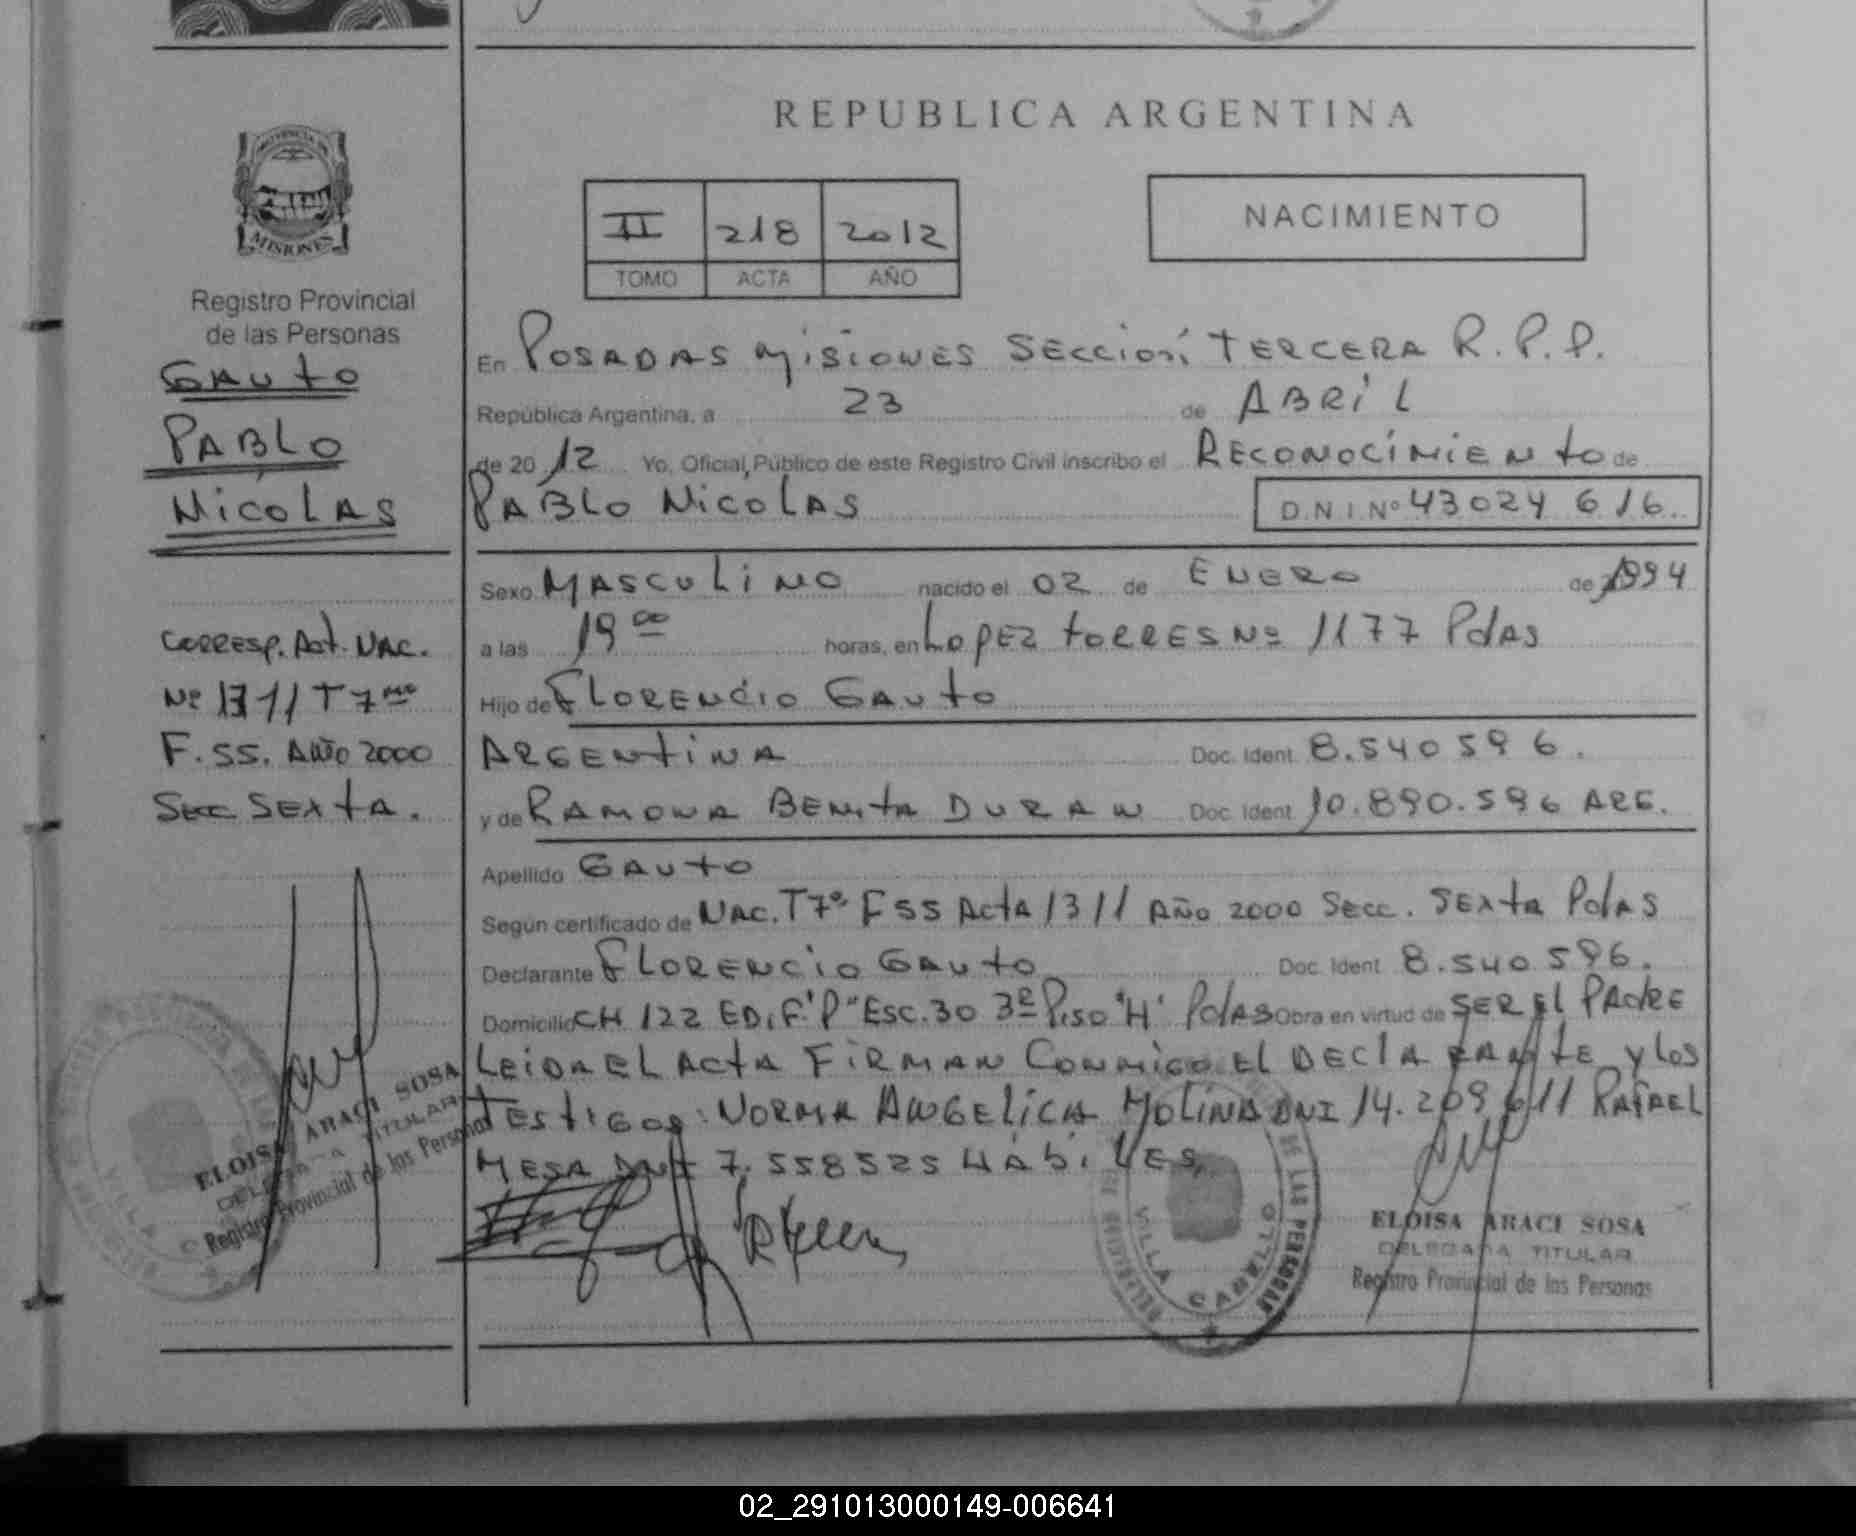 REPUBLICA ARGENTINA
II 218 2012
TOMO ACTA AÑO
NACIMIENTO
MISIONES
Registro Provincial
de las Personas
GAUTO
PABLO
NICOLAS
CORRESP. Act. NAC.
Nº 1311 T 7mo
F. 55. AÑO 2000
SECC SEXTA.
En POSADAS MISIONES SECCION TERCERA R.P.P.
República Argentina, a 23 de ABRIL
de 2012 Yo, Oficial Público de este Registro Civil inscribo el RECONOCIMIENTO de
PABLO NICOLAS D.N.I. Nº 43024 616
Sexo MASCULINO nacido el 02 de ENERO de 1994
a las 19 00 horas, en LOPEZ TORRES Nº 1177 Pdas
Hijo de FLORENCIO GAUTO
ARGENTINA Doc. Ident. 8.540596.
y de RAMONA BENITA DURAN Doc. Ident. 10.890.596 ARG.
Apellido GAUTO
Según certificado de NAC. T 7º F 55 ACTA 1311 AÑO 2000 SECC. SEXTA Pdas
Declarante FLORENCIO GAUTO Doc. Ident. 8.540596.
Domicilio CH 122 EDIF. "P" Esc. 30 3º Piso "H" Pdas Obra en virtud de SER EL PADRE
LEIDA EL ACTA FIRMAN CONMIGO EL DECLARANTE y LOS
TESTIGOS: NORMA ANGELICA MOLINA DNI 14.209611 RAFAEL
MESA DNI 7.558525 HABILES
ELOISA ARACI SOSA
DELEGADA TITULAR
Registro Provincial de las Personas
VILLA CABELLO
DE LAS PERSONAS
ELOISA ARACI SOSA
DELEGADA TITULAR
Registro Provincial de las Personas
02_291013000149-006641